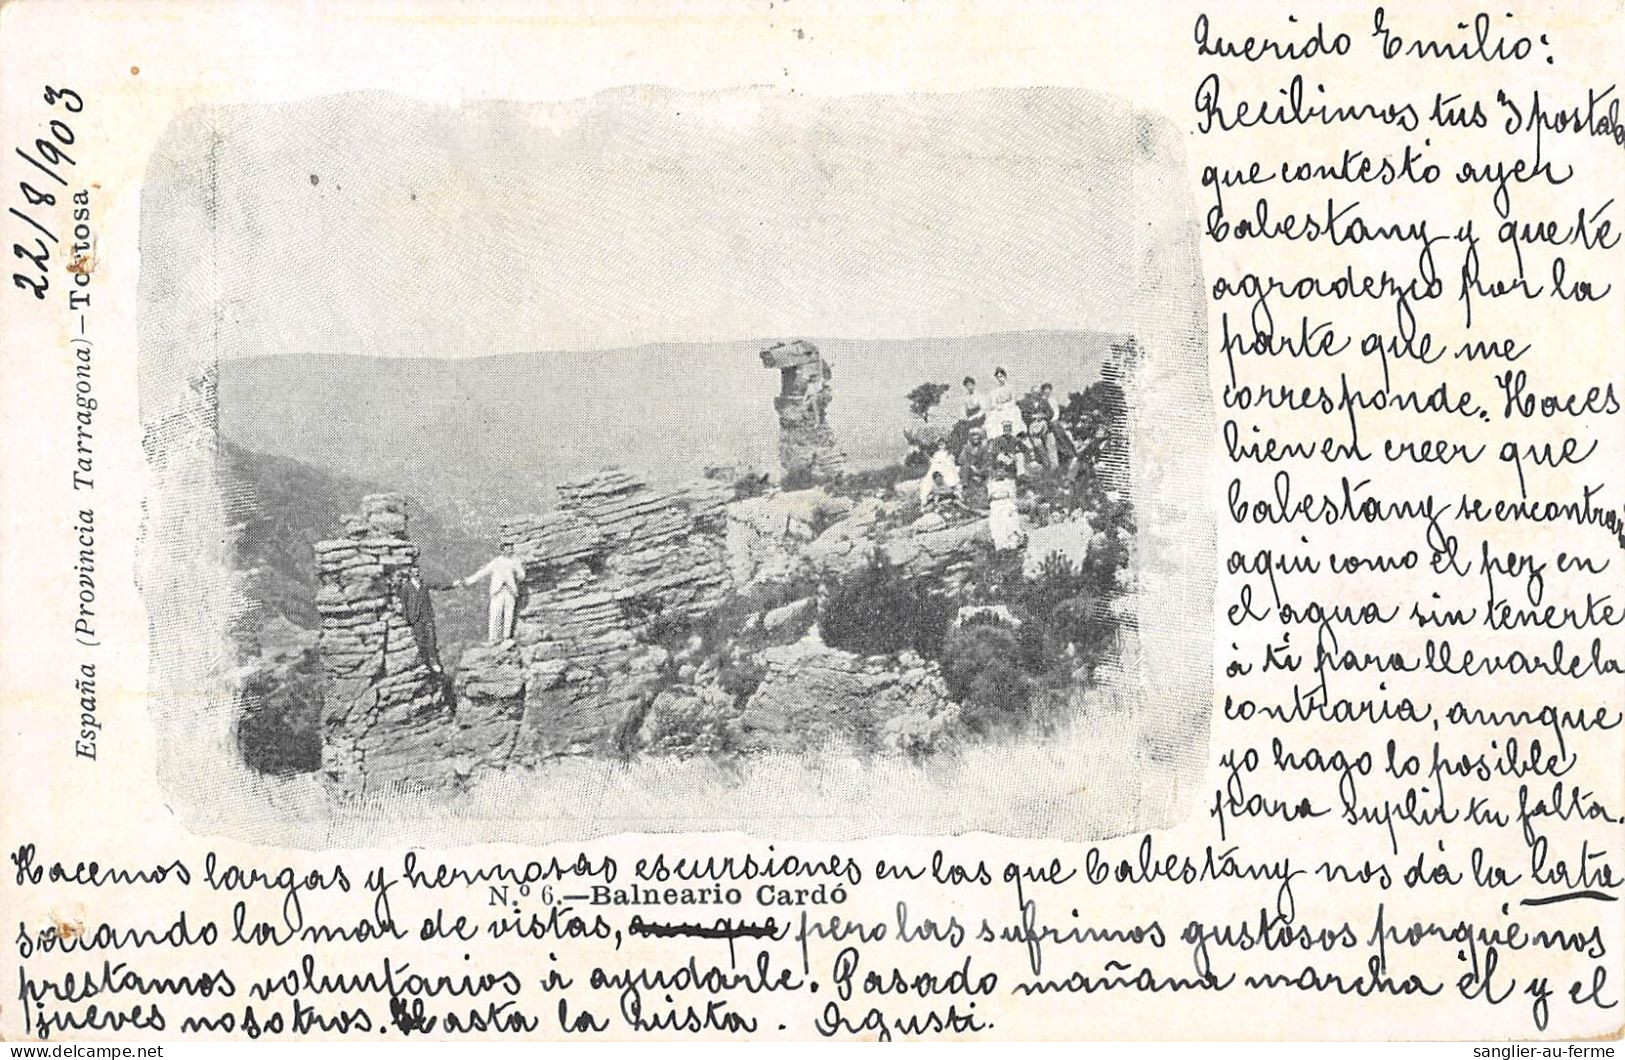 22/8/903
España (Provincia Tarragona)—Tortosa
Querido Emilio:
Recibimos tus 3 postals
que contestó ayer
Cabestany y que te
agradezco por la
parte que me
corresponde. Haces
bien en creer que
Cabestany se encontrará
aqui como el pez en
el agua sin tenerte
à ti para llevarle la
contraria, aunque
yo hago lo posible
para suplir tu falta.
Hacemos largas y hermosas escursiones en las que Cabestany nos dá la lata
N.º 6.—Balneario Cardó
sacando la mar de vistas, aunque pero las sufrimos gustosos porqué nos
prestamos voluntarios à ayudarle. Pasado mañana marcha él y el
jueves nosotros. Hasta la vista. Agustí.
sanglier-au-ferme